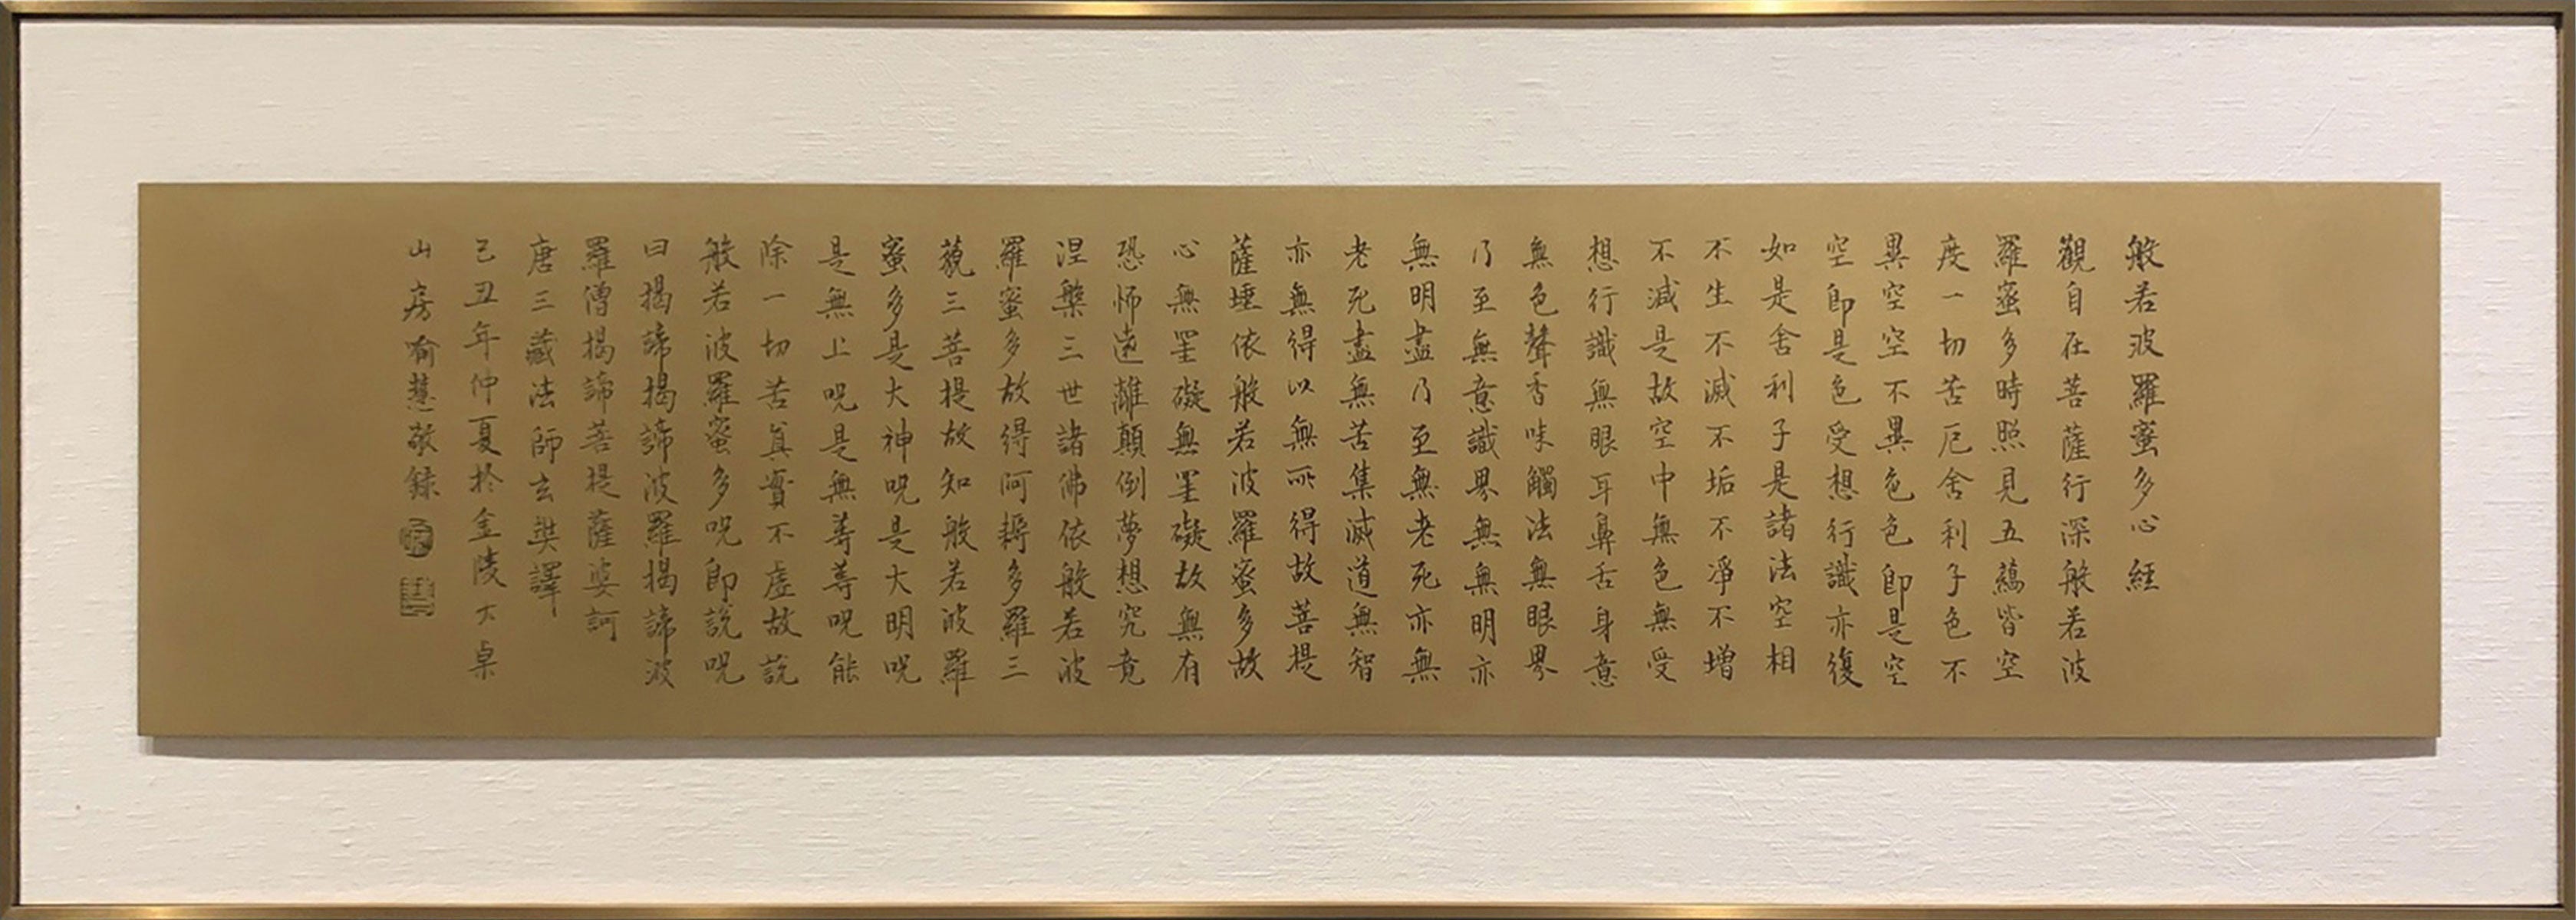 般若波羅蜜多心經
觀自在菩薩行深般若波
羅蜜多時照見五蘊皆空
度一切苦厄舍利子色不
異空空不異色色即是空
空即是色受想行識亦復
如是舍利子是諸法空相
不生不滅不垢不淨不增
不減是故空中無色無受
想行識無眼耳鼻舌身意
無色聲香味觸法無眼界
乃至無意識界無無明亦
無明盡乃至無老死亦無
老死盡無苦集滅道無智
亦無得以無所得故菩提
薩埵依般若波羅蜜多故
心無罣礙無罣礙故無有
恐怖遠離顛倒夢想究竟
涅槃三世諸佛依般若波
羅蜜多故得阿耨多羅三
藐三菩提故知般若波羅
蜜多是大神呪是大明呪
是無上呪是無等等呪能
除一切苦真實不虛故說
般若波羅蜜多呪即說呪
曰揭諦揭諦波羅揭諦波
羅僧揭諦菩提薩婆訶
唐三藏法師玄奘譯
己丑年仲夏於金陵大卓
山房喻慧敬録